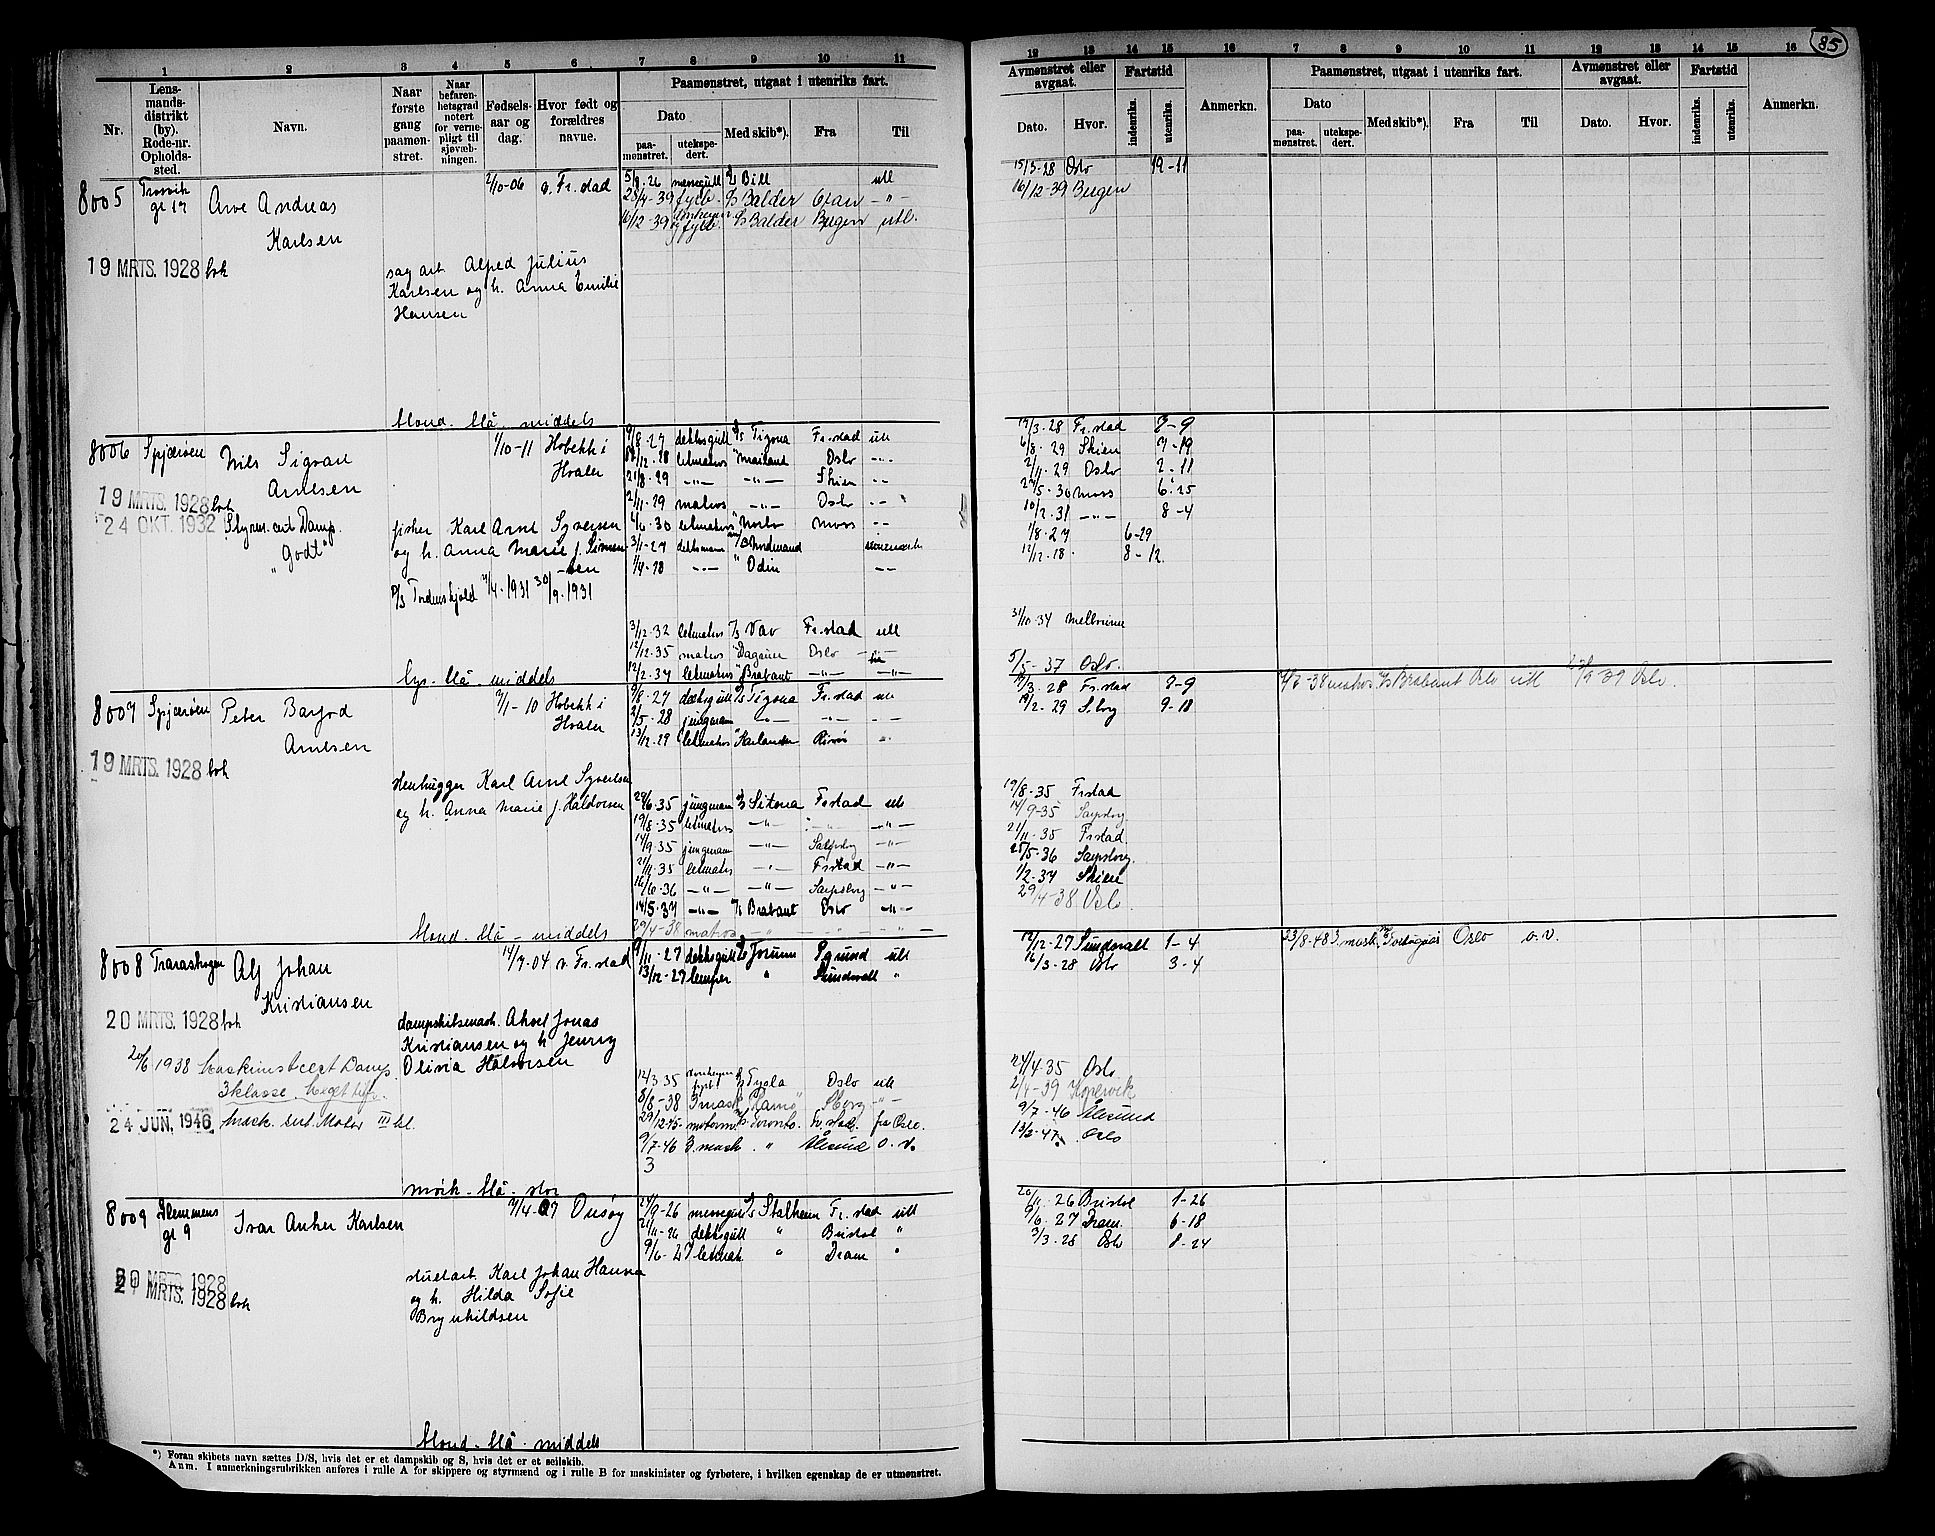 85
1 2 3 4 5 6 7 8 9 10 11
Nr.
Lens-
mands-
distrikt
(by).
Rode-nr.
Opholds-
sted.
Navn.
Naar
første
gang
paamøn-
stret.
Naar
befaren-
hetsgrad
notert
for verne-
pligt til
sjøvæb-
ningen.
Fødsels-
aar og
dag.
Hvor født og
forældres
navne.
Paamønstret, utgaat i utenriks fart.
Dato
paa-
mønstret.
utekspe-
dert.
Med skib*).
Fra
Til
8005
gr 17
Arve Andreas
Karlsen
2/10-06 v. Fr.stad
5/8.26 messegutt Bill utl
28/4-39 fyrb. Balder Gran -"-
16/12 39 fyrb. Balder Bergen utl.
19 MRTS. 1928 bok
sag arb Alfred Julius
Karlsen og h. Anna Emilie
Hansen
blond. blå. middels
8006 Spjærøen
Nils Sigvart
Arntsen
1/10-11 Hobekk i
Hvaler
9/8.27 dekksgutt D/S Tigona Fr.stad utl
12.28 letmatros Oslo -"-
21/8-29 -"- -"- Skien -"-
2/11-29 matros -"- Oslo -"-
6.30 letmatros Moss -"-
3/1-27 dekksmann
1/4-28 -"- " Odin -"-
19 MRTS. 1928 bok
24 OKT. 1932 Styrm. cert Damp.
"Godt"
fisker Karl Arnt Syversen
og h. Anna Marie f. Simen-
sen
P/S Tordenskjold 4-1931 30/9-1931
3/12.32 letmatros Vav Fr.stad utl
12/12.35 matros " Oslo -"-
12/2-37 letmatros " Brabant -"- -"-
lys. blå middels
8007 Spjærøen
Peter
Arntsen
1-10 Hobekk i
Hvaler
9/8.27 dæksgutt Tigona Fr.stad utl
5.28 jungmann -"- -"- -"-
13/12.29 letmatros "
19 MRTS. 1928 bok
stenhugger Karl Arnt Syvertsen
og h. Anna Marie f. Haldorsen
6.35 jungmann Sitona Frstad utl
19/8.35 letmatros -"- -"- -"-
14/9.35 jungmann -"- Sarpsborg -"-
21/11.35 letmatros -"- Frstad -"-
16/6.36 -"- -"- Sarpsborg -"-
14/5.37 -"- Brabant Oslo -"-
29/4-38 matros -"- -"- -"-
blond. blå - middels
8008
Alf Johan
Kristiansen
14/7.04 v. Fr.stad
9/11-27 dekksgutt Jorunn utl
13/12-27 lemper " Sundsvall "
20 MRTS. 1928 bok
dampskibsmask. Aksel Jonas
Kristiansen og h Jenny
Olivia Halvorsen
20/6 1938 Maskinistcert Damp
3 klasse. Meget
12/3 35 fyrb Tysla Oslo utl
8/8-38 3 mask -"-
29/12-45- Toronto. Fr.stad. fra Oslo.
9/7-46 3. mask. " Ålesund o. v.
3
24 JUN. 1946 Mask. cert. Motor III kl.
mørk. blå. stor
8009 Glemmens
gr 9
Ivar Anker Karlsen
4-07 Onsøy
24/9-26 messegut Stalheim Fr.stad utl
21/11-26 dekksgutt " Bristol "
9/6-27 letmatr " Dram "
20 MRTS. 1928
21 MRTS. 1928 bok
stuetarb. Karl Johan Hanna
og h. Hilda Sofie
Brynhildsen
blond. blå. middels
*) Foran skibets navn sættes D/S, hvis det er et dampskib og S, hvis det er et seilskib.
Anm. I anmerkningsrubrikken anføres i rulle A for skippere og styrmænd og i rulle B for maskinister og fyrbøtere, i hvilken egenskap de er utmønstret.
12 13 14 15 16 7 8 9 10 11 12 13 14 15 16
Avmønstret eller
avgaat.
Dato.
Hvor.
Fartstid
indenriks.
utenriks.
Anmerkn.
Paamønstret, utgaat i utenriks fart.
Dato
paa-
mønstret.
utekspe-
dert.
Med skib*).
Fra
Til
Avmønstret eller
avgaat.
Dato.
Hvor.
Fartstid
indenriks.
utenriks.
Anmerkn.
15/3-28 Oslo 19-11
16/12-39 Bergen
3-28 Fr.stad 7-9
6/8.29 Skien 7-19
2/11.29 Oslo 2-11
5-30 Moss 6-25
10/2.31 -"- 8-4
1/8.27 6-29
12/12.28 8-12.
31/10.34 Melbourne
5/5-37 Oslo.
38 matros Brabant Oslo utl 39 Oslo.
3-28 Fr.stad 7-9
19/2-29 S.borg 9-18
19/8-35 Frstad
14/9-35 Sarpsborg.
21/11-35 Frstad
25/5-36 Sarpsborg
1/2-37 Skien
29/4-38 Oslo.
12/12-27 Sundsvall 1-4
16/3-28 Oslo 3-4
23/8-48 3. mask. Oslo o.v.
27/4-35 Oslo
2/4-39 Kopervik
9/7-46 Ålesund
13/2-47. Oslo
20/11-26 Bristol 1-26
9/6-27 Dram. 6-18
2/3-28 Oslo 8-24